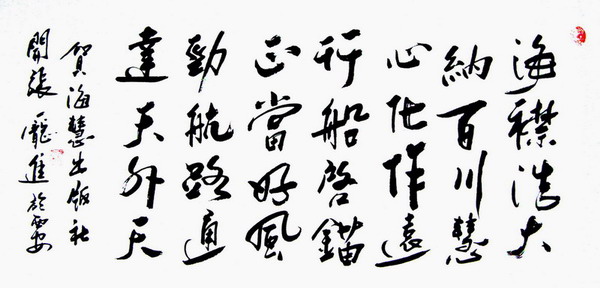 海襟浩大
納百川慧
心化作遠
行船啓錨
正當好風
勁航路通
達天外天
賀海慧出版社
開張 龐進於西安